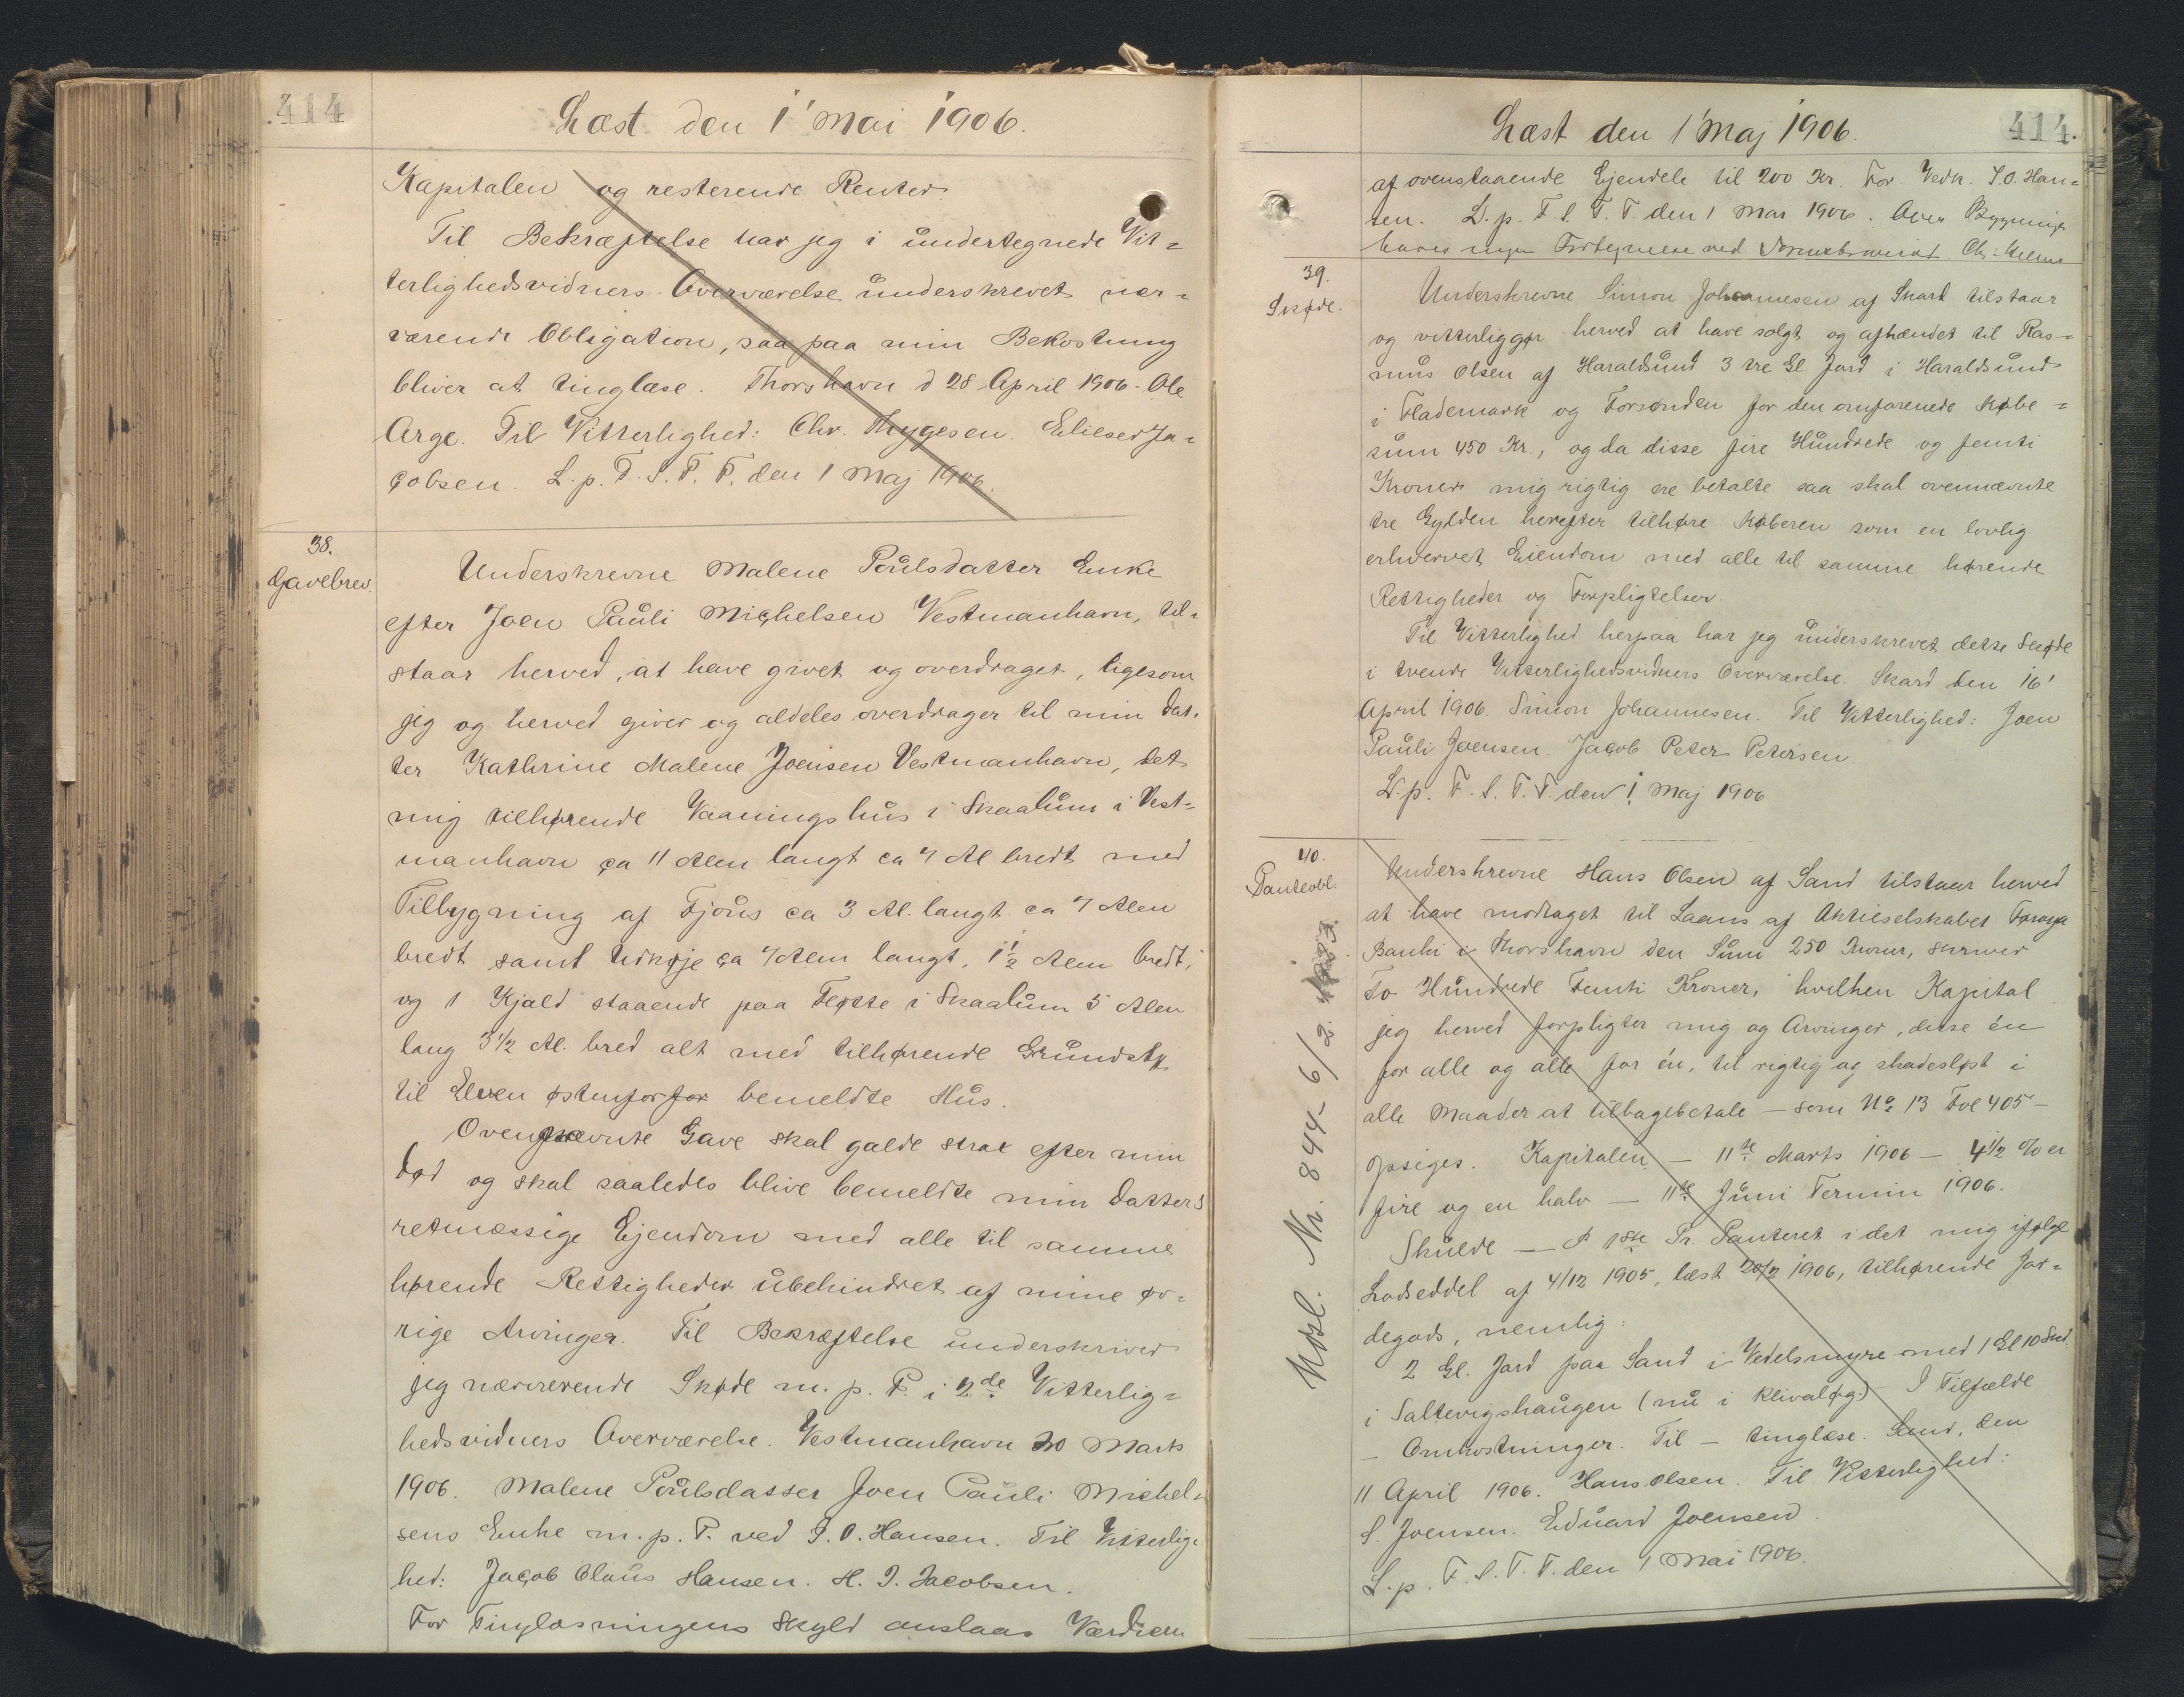 414
Læst den 1' Mai 1906.
Kapitalen og resterende Renter.
Til Bekræftelse har jeg i undertegnede Vit=
terlighedsvidners Overværelse underskrevet nær=
værende Obligation, saa paa min Bekostning
bliver at tinglæse. Thorshavn d 28 April 1906. Ole
Arge. Til Vitterlighed: Chr. Thygesen. Elieser Ja=
cobsen. L. p. F. S. T. T. den 1 Maj 1906.
38.
Gavebrev.
Underskrevne Malene Poulsdatter Enke
efter Joen Pauli Michelsen Vestmanhavn, til=
staar herved, at have givet og overdraget, ligesom
jeg og herved giver og aldeles overdrager til min Dat=
ter Kathrine Malene Joensen Vestmanhavn, det
mig tilhørende Vaaningshus i Skaalum i Vest=
manhavn ca 11 Alen langt ca 7 Al bredt med
Tilbygning af Fjøus ca 3 Al. langt ca 7 Alen
bredt samt Udkøje ca 7 Alen langt, 1½ Alen bredt,
og 1 Kjald staaende paa Fløtte i Skaalum 5 Alen
lang 3½ Al. bred alt med tilhørende Grundsty
til Elven østenfor for bemeldte Hus.
Ovennævnte Gave skal gælde strax efter min
Død og skal saaledes blive bemeldte min Datters
retmæssige Ejendom med alle til samme
hørende Rettigheder ubehindret af mine øv=
rige Arvinger. Til Bekræftelse underskriver
jeg nærværende Skøde m. p. P. i 2de Vitterlig=
hedsvidners Overværelse. Vestmanhavn 20 Marts
1906. Malene Poulsdatter Joen Pauli Michel=
sens Enke m. p. P. ved J. O. Hansen. Til Vitterlig=
hed: Jacob Olaus Hansen. H. J. Jacobsen.
For Tinglæsningens Skyld anslaas Værdien
Læst den 1' Maj 1906.
414.
af ovenstaaende Ejendele til 200 Kr. For Vedk. J. O. Han=
sen. L. p. F. S. T. T. den 1 Mai 1906. Over Bygninger
haves ingen
39.
Skøde.
Underskrevne Simon Johannesen af Skard tilstaar
og vitterliggør herved at have solgt og afhændet til Ras=
mus Olsen af Haraldsund 3 tre Gl. Jord i Haraldsund
i Flademark og Forsønden for den omforenede Købe=
sum 450 Kr., og da disse fire Hundrede og femti
Kroner mig rigtig ere betalte saa skal ovennævnte
tre Gylden herefter tilhøre Køberen som en lovlig
erhvervet Eiendom med alle til samme hørende
Rettigheder og Forpligtelser.
Til Vitterlighed herpaa har jeg underskrevet dette Skøde
i tvende Vitterlighedsvidners Overværelse. Skard den 16'
April 1906. Simon Johannesen. Til Vitterlighed: Joen
Pauli Joensen. Jacob Peter Petersen
L. p. F. S. T. T. den 1. Maj 1906
40.
Panteobl.
Udsl. Nr. 844 - 6/2
Underskrevne Hans Olsen af Sand tilstaar herved
at have modtaget til Laans af Aktieselskabet Føroya
Banki i Thorshavn den Sum 250 Kroner, skriver
To Hundrede Femti Kroner, hvilken Kapital
jeg herved forpligter mig og Arvinger, disse én
for alle og alle for én, til rigtig og skadesløst i
alle Maader at tilbagebetale – som No 13 Fol 405 –
opsiges. Kapitalen – 11te Marts 1906 – 4½ % er
fire og en halv – 11te Juni Termin 1906.
Skulde – P 1ste Pr. Panteret i det mig ifølge
Lodseddel af 4/12 1905, læst 20/2 1906, tilhørende Jor=
degods, nemlig:
2 Gl. Jord paa Sand i Vedelsmyre med 1 Gl 10 Skd
i Saltevigshaugen (nu i Klivaløg.) I Tilfælde
– Omkostninger. Til – tinglæse. Sand, den
11 April 1906. Hans Olsen. Til Vitterlighed:
S. Joensen. Eduard Joensen.
L. p. F. S. T. T. den 1 Mai 1906.